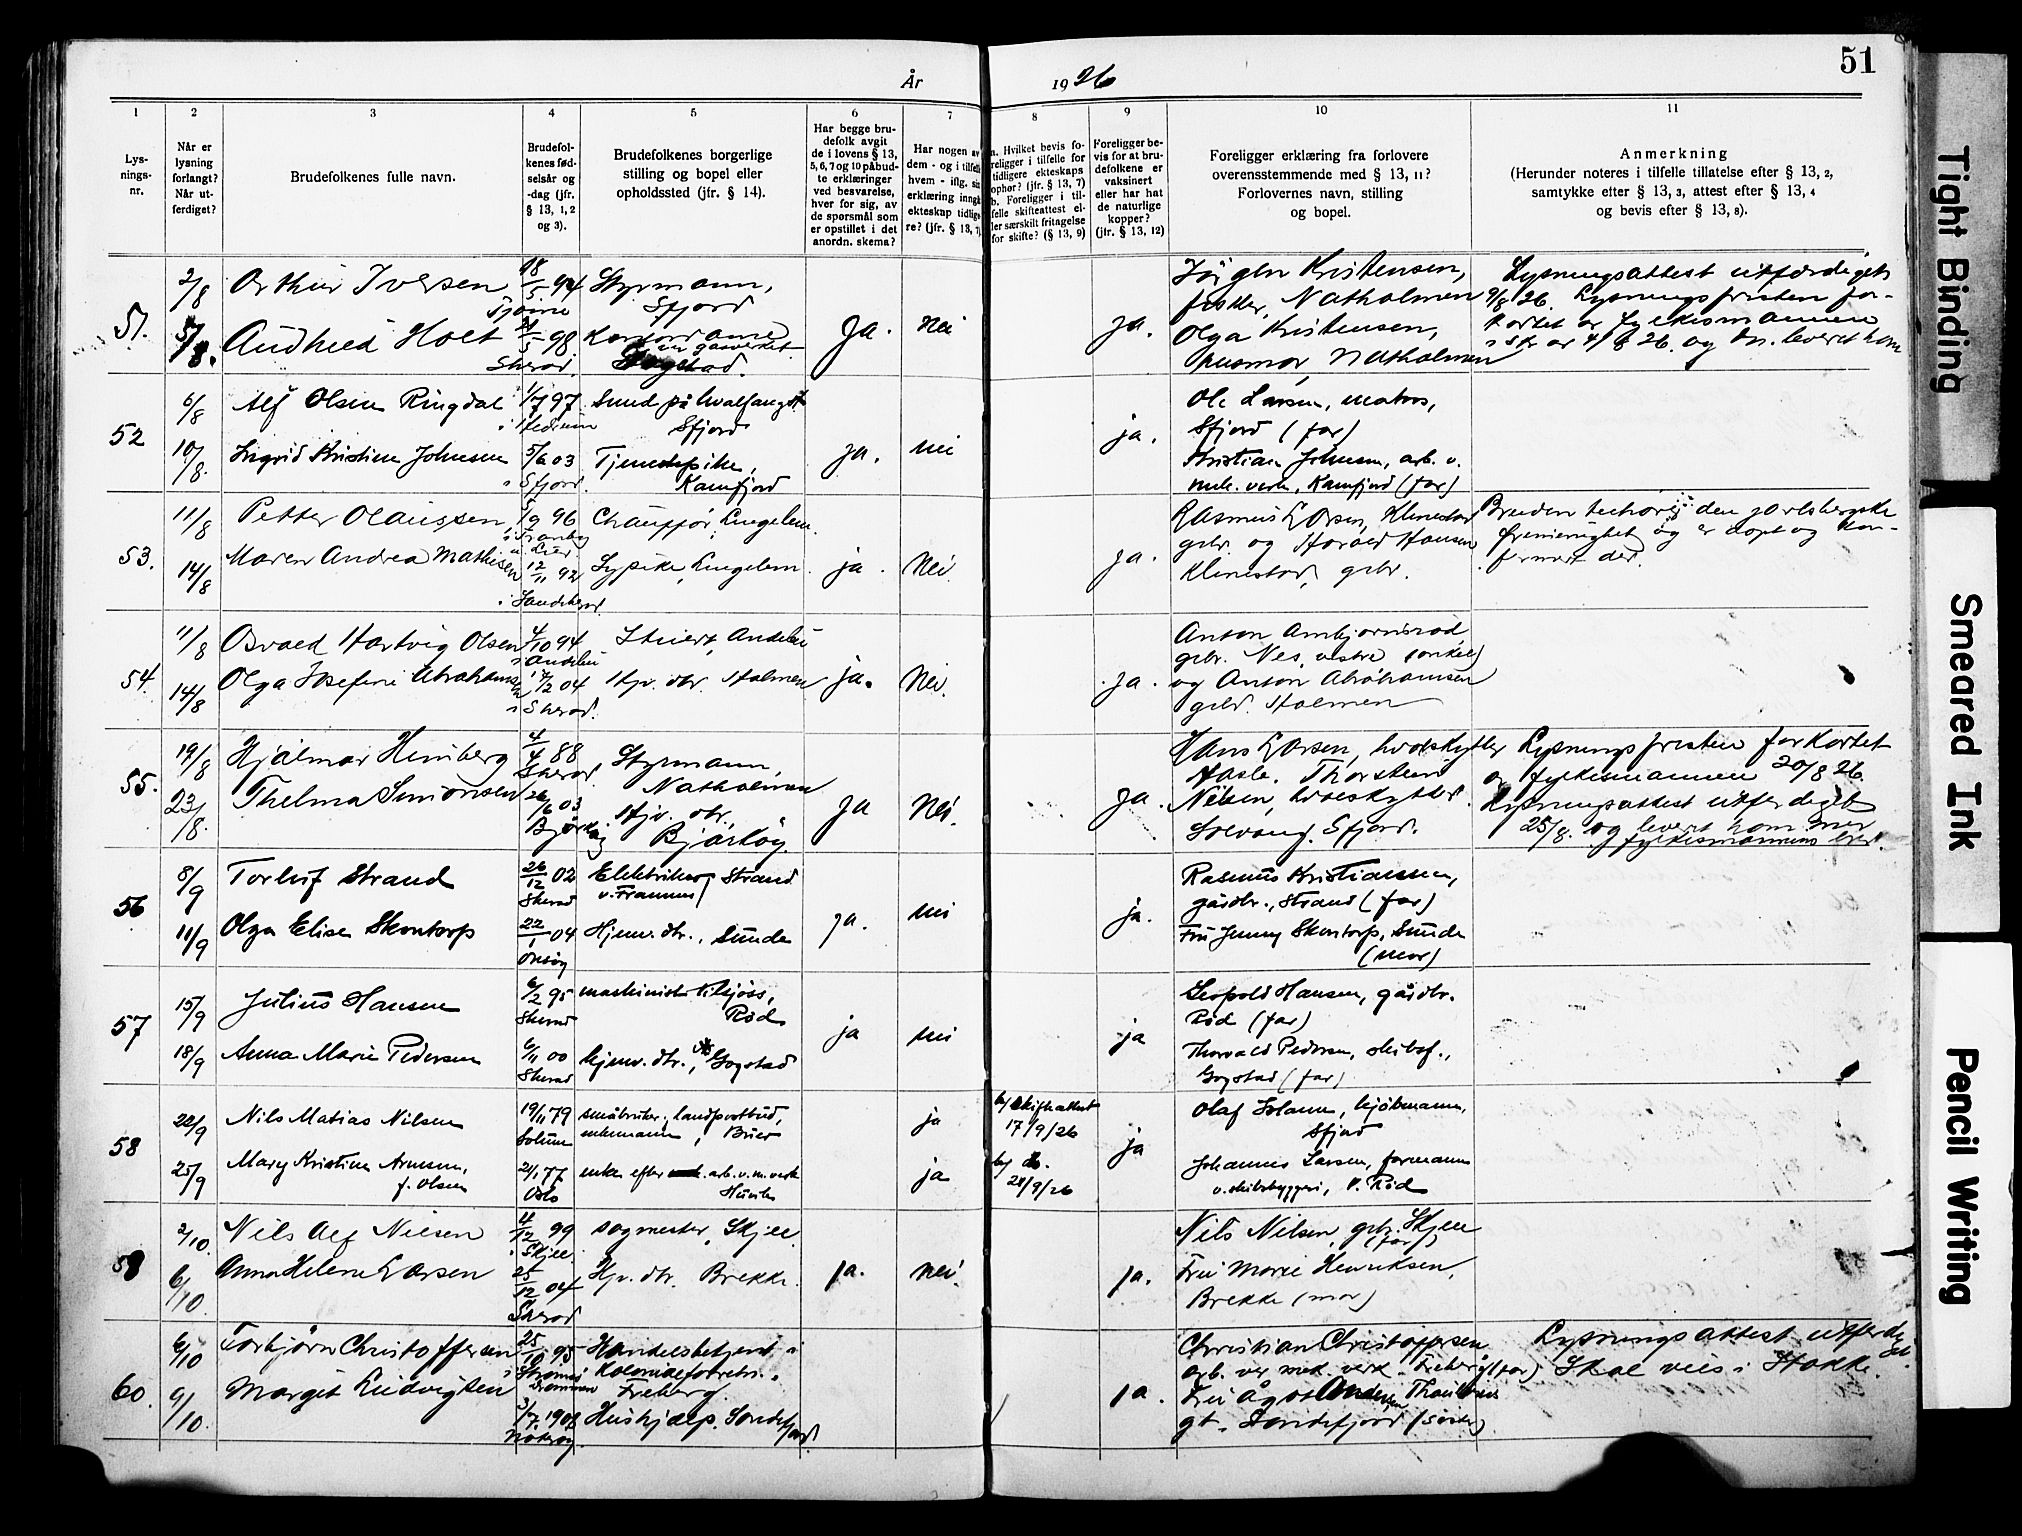 51
År 1926
1 2 3 4 5 6 7 8 9 10 11
Lys-
nings-
nr.
Når er
lysning
forlangt?
Når ut-
ferdiget?
Brudefolkenes fulle navn.
Brudefol-
kenes fød-
selsår og
-dag (jfr.
§ 13, 1, 2
og 3).
Brudefolkenes borgerlige
stilling og bopel eller
opholdssted (jfr. § 14).
Har begge bru-
defolk avgit
de i lovens § 13,
5, 6, 7 og 10 påbud-
te erklæringer
ved besvarelse,
hver for sig, av
de spørsmål som
er opstillet i det
anordn. skema?
Har nogen av
dem - og i tilfelle
hvem - iflg. sin
erklæring inngå
ekteskap tidlige-
re? (jfr. § 13, 7)
a. Hvilket bevis fo-
religger i tilfelle for
tidligere ekteskaps
ophør? (jfr. § 13, 7)
b. Foreligger i til-
felle skifteattest el-
ler særskilt fritagelse
for skifte? (§ 13, 9)
Foreligger be-
vis for at bru-
defolkene er
vaksinert
eller har hat
de naturlige
kopper?
(jfr. § 13, 12)
Foreligger erklæring fra forlovere
overensstemmende med § 13, 11?
Forlovernes navn, stilling
og bopel.
Anmerkning
(Herunder noteres i tilfelle tillatelse efter § 13, 2,
samtykke efter § 13, 3, attest efter § 13, 4
og bevis efter § 13, 8).
51.
2/8
5/8.
Arthur Iversen
18/5 94
Tjøme
Styrmann,
Sfjord
Audhild Holt
98
Skerød.
Kontordame
ved gasverket
Gogstad.
ja.
nei
ja.
Jørgen Kristensen,
fisker, Natholmen
Olga Kristensen,
husmor, Natholmen
Lysningsattest utferdiget
9/8 26. Lysningsfristen for-
kortet av fylkesmannen
4/8 26. og leveret ham
52
6/8
10/8.
Alf Olsen Ringdal
1/7 97
Smed på hvalfangst
Sfjord
Ingrid Kristine Johnsen
5/6 03
i Sfjord.
Tjenestepike,
Kamfjord
ja.
nei
ja.
Ole Larsen, matros,
Sfjord (far)
Kristian Johnsen, arb. v.
mek. verk., Kamfjord (far)
53.
11/8
14/8
Petter Olaussen
96
i Tranby
i Lier.
Chauffør, Lingelem.
Maren Andrea Mathisen
12/11 92
i Sandeherad.
Sypike, Lingelem.
ja.
Nei.
ja.
Rasmus Larsen, Klinestad
gbr. og Harald Hansen
Klinestad, gbr.
Bruden tilhører den jarlsbergske
frimenighet og er døpt og kon-
firmert der.
54.
11/8
14/8
Osvald Hartvig Olsen
4/10 94
i Andebu
Stuert, Andebu
Olga Josefine Abrahamsen
17/12 04
i Skerød.
Hjv. dtr. Holmen
ja.
Nei.
ja.
Anton Ambjørnsrød,
gbr. Nes, vestre (onkel)
og Anton Abrahamsen
gbr. Holmen
55.
19/8
23/8.
Hjalmar Himberg
4/4 88
Skerød,
Styrmann,
Natholmen
Thelma Simonsen
26/6 03
Bjørkøy
Hjv. dtr.,
Bjørkøy.
ja
Nei.
ja.
Hans Larsen, hvalskytter
Hasle. Thorstein
Nilsen, hvalskytter.
Solvang. Sfjord.
Lysningsfristen forkortet
av fylkesmannen 20/8 26.
Lysningsattest utferdiget
25/8. og levert ham med
fylkesmannens brev.
56
8/9
11/9
Torleif Strand
26/12 02
Skerød
Elektriker, Strand
v. Framnes
Olga Elise Skontorp
22/1 04
Onsøy
Hjemv. dtr., Sunde
ja.
nei
ja.
Rasmus Kristiansen,
gårdbr., Strand (far)
Fru Jenny Skontorp, Sunde
(mor)
57
15/9
18/9
Julius Hansen
6/2 95
Skerød
maskinist tilsjøss,
Rød
Anna Marie Pedersen
6/11 00
Skerød
hjemv. dtr., Gogstad
ja
nei
ja
Leopold Hansen, gårdbr.
Rød (far)
Thorvald Pedersen, skibsf.,
Gogstad (far)
58
22/9
25/9
Nils Matias Nilsen
19/11 79
Solum
småbruker, landpostbud,
enkemann, Buer
ja
b) skifteattest
17/9/26
ja
Olaf Solann, kjøbmann,
Sfjord
Mary Kristine Arnesen,
f. Olsen
21/1 77
Oslo
enke efter arb. v. m. verk
Huvik
ja
b) do.
21/9/26
Johannes Larsen, formann
v. skibsbyggeri, V. Rød
59
2/10.
6/10.
Nils Alf Nilsen
4/12 99
i Skjell.
sagmester, Skjell.
Anna Helene Larsen
25/12 04
Skerød
Hjv. dtr. Brekke.
ja.
nei.
ja.
Nils Nilsen, gbr. Skjell
(far)
Fru Marie Henriksen,
Brekke (mor)
60.
6/10
9/10.
Torbjørn Christoffersen
25/10 95
i Strømsø
Drammen
Handelsbetjent i
Kolonialforretn.
Freberg.
Margit Ludvigsen
3/7 1908
Nøtterøy.
Hushjelp. Sandefjord.
ja.
Christian Christoffersen
arb. ved mek. verk. Freberg (far)
Fru Ågot
gt. Sandefjord (søster)
Lysningsattest utferdiget.
Skal vies i Stokke.
Tight Binding
Smeared Ink
Pencil Writing